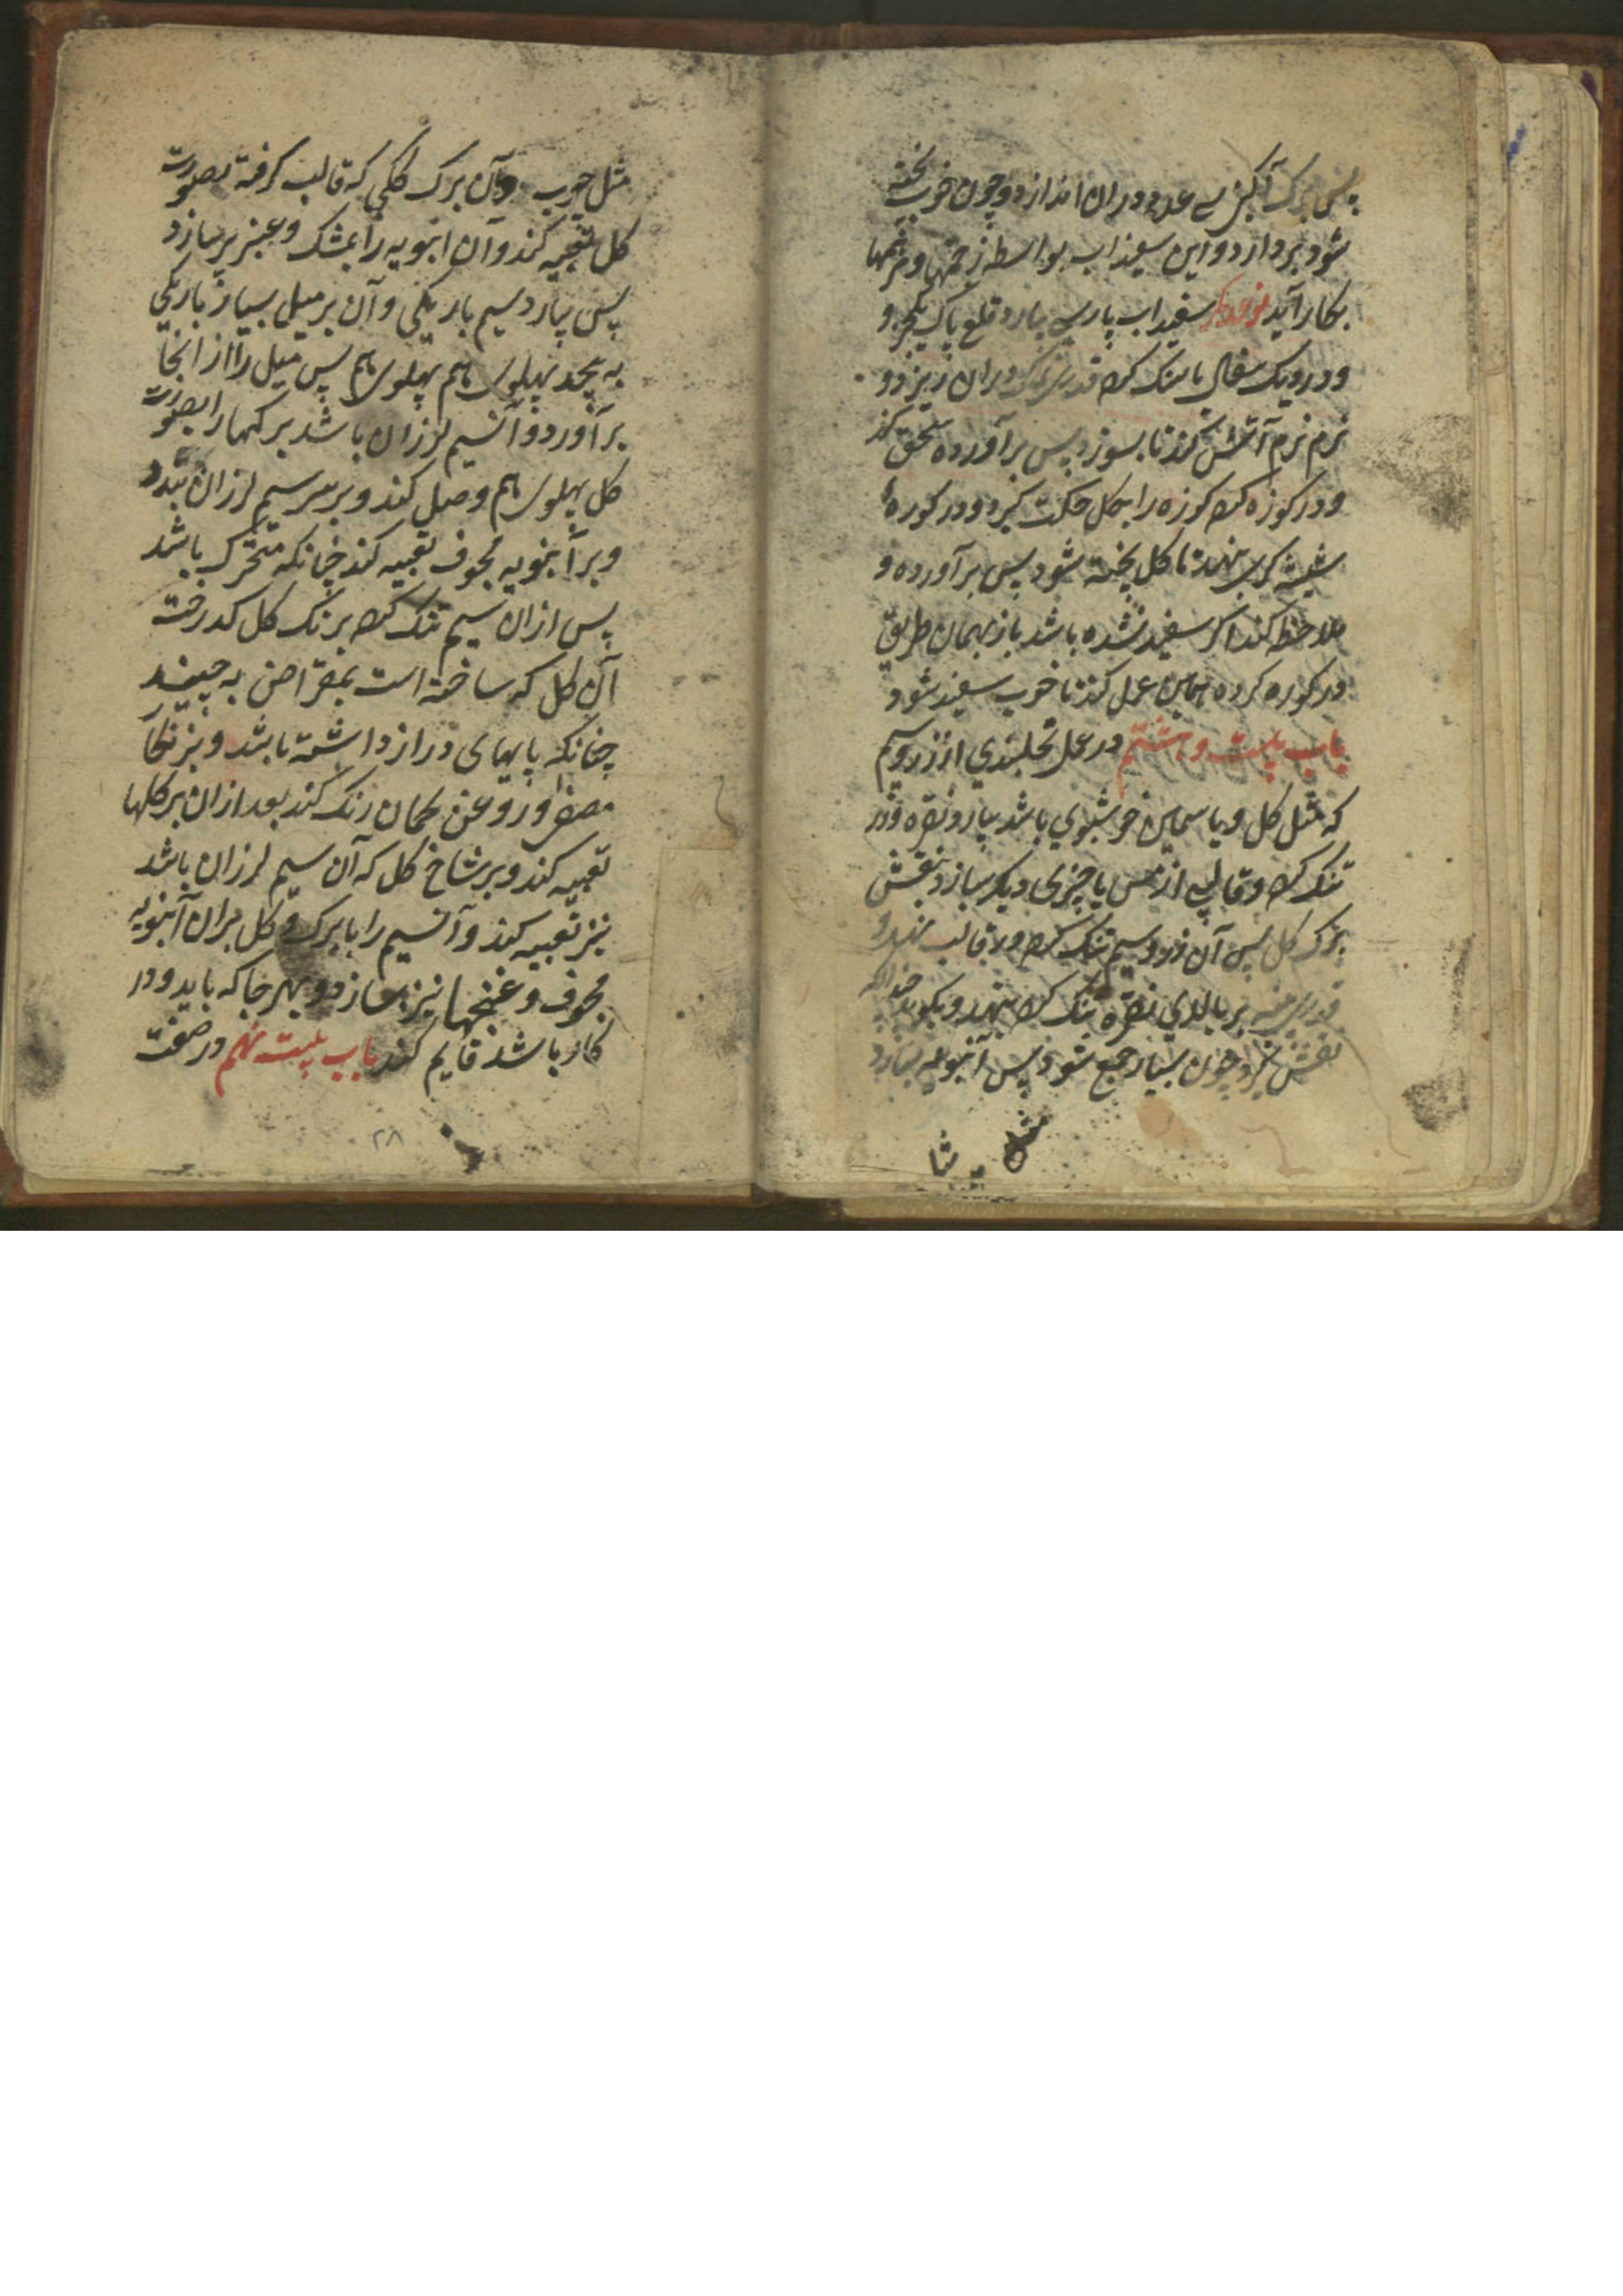 پس برک آکبن سے عدد دران اندازد و چون خوب پخته
شود بردارد و این سفیداب بواسطه زخمها و مرهمها
بکار آید نوعدیکر سفیداب پارسی بیارد قلع پاک یکجزو
و در دیک سفال یا سنک کرده قدری نمک دران ریزد و
نرم نرم آتش کند تا بسوزد پس برآورده سحق کند
و در کوزه کرده کوزه را بکل حکمت کیرد و در کوره
شیشه کری نهد تا کل پخته شود پس برآورده و
ملاحظه کند اکر سفید نشده باشد باز بهمان طریق
در کوره کرده همین عمل کند تا خوب سفید شود
باب بیست و هشتم در عمل نخلبندی از زر و سیم
که مثل کل و یاسمین خوشبوی باشد بیارد نقره و زر
تنک کرده و قالبی از مس یا چیزی دیکر سازد بنقش
برک کل پس آن زر و سیم تنک کرده در قالب نهد و
قدری بر بالای نقره تنک کرده بنهد و بکوبد چندانکه
نقش کیرد چون بسیار جمع شود پس انبوبه بسازد
مثل چوب و آن برک کلی که قالب کرفته بصورت
کل تعبیه کند و آن انبوبه را بمشک و عنبر پر سازد
پس بیارد سیم باریکی و آن بر میل بسیار باریکی
به پیچد پهلوی هم پهلوی هم پس میل را از انجا
برآورد و آنسیم لرزان باشد برکها را بصورت
کل پهلوی هم وصل کند و بر سر سیم لرزان بندد
و بر انبوبه مجوف تعبیه کند چنانکه متحرک باشد
پس ازان سیم تنک کرده برنک کل کدرخته
آن کل که ساخته است بمقراض به چیند
چنانکه پایهای دراز داشته باشد و بزنکار
مصفر و روغن کمان رنک کند بعد ازان بر کلها
تعبیه کند و بر شاخ کل که آن سیم لرزان باشد
نیز تعبیه کند و آنسیم را با برک و کل بران انبوبه
مجوف و غنچها نیز بسازد و بهر جا که باید و در
کار باشد قایم کند باب بیست نهم در صفت
۲۸